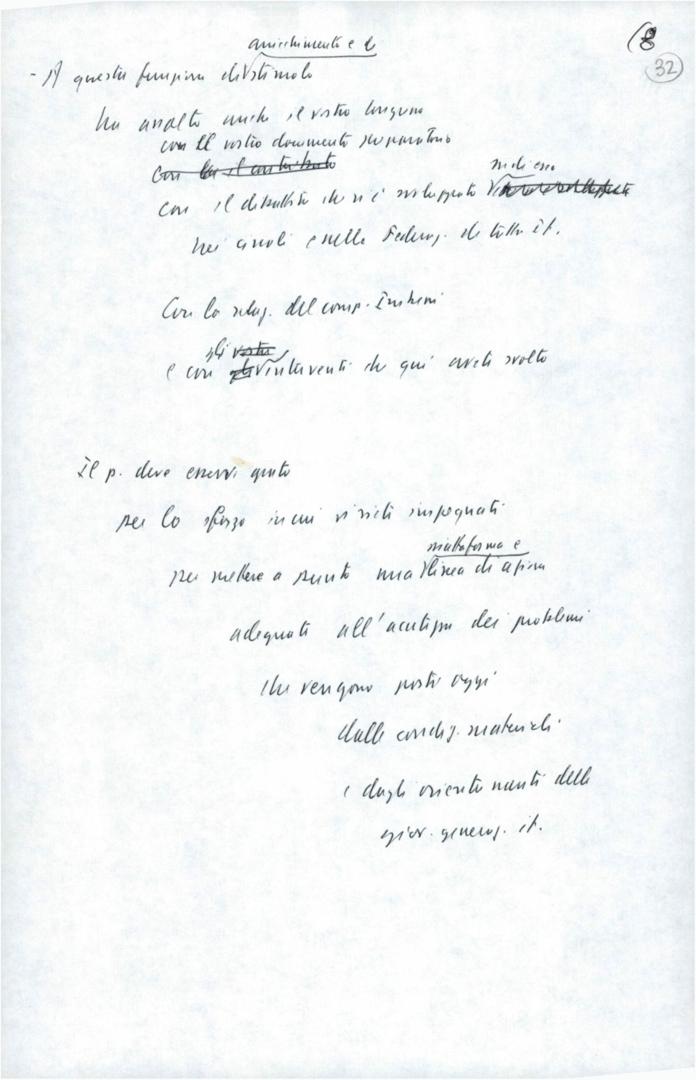 (8
32
arricchimento e di
- A questa funzione di stimolo
ha assolto anche il vostro congresso
con il vostro documento preparatorio
con il contributo
su di esso
con il dibattito che si è sviluppato
nei circoli e nelle Federaz. di tutta it.
Con la relaz. del comp.
gli vostri
e con gli interventi che qui avete svolto
Il p. deve esservi grato
per lo sforzo in cui vi siete impegnati
piattaforma e
per mettere a punto una linea di azione
adeguati all'acutezza dei problemi
che vengono posti oggi
dalle condiz. materiali
e dagli orientamenti delle
giov. generaz. it.